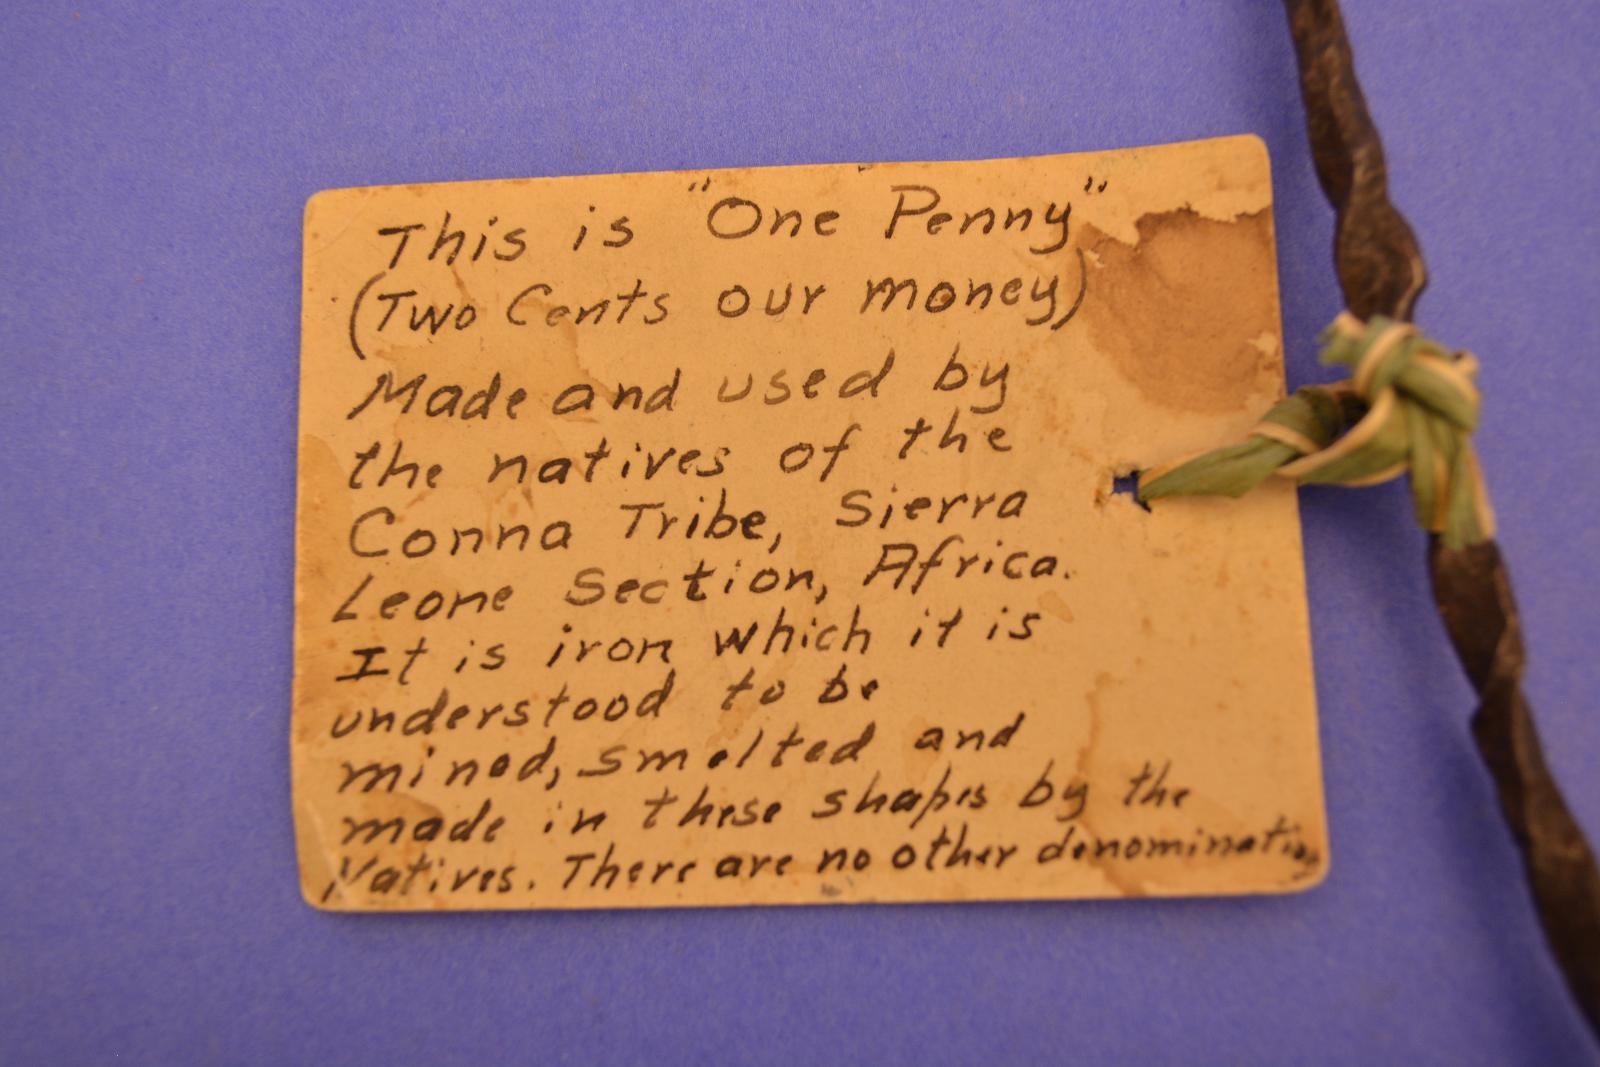 This is "One Penny"
(Two Cents our money)
Made and used by
the natives of the
Conna Tribe, Sierra
Leone Section, Africa.
It is iron which it is
understood to be
mined, smelted and
made in these shapes by the
Natives. There are no other denomination